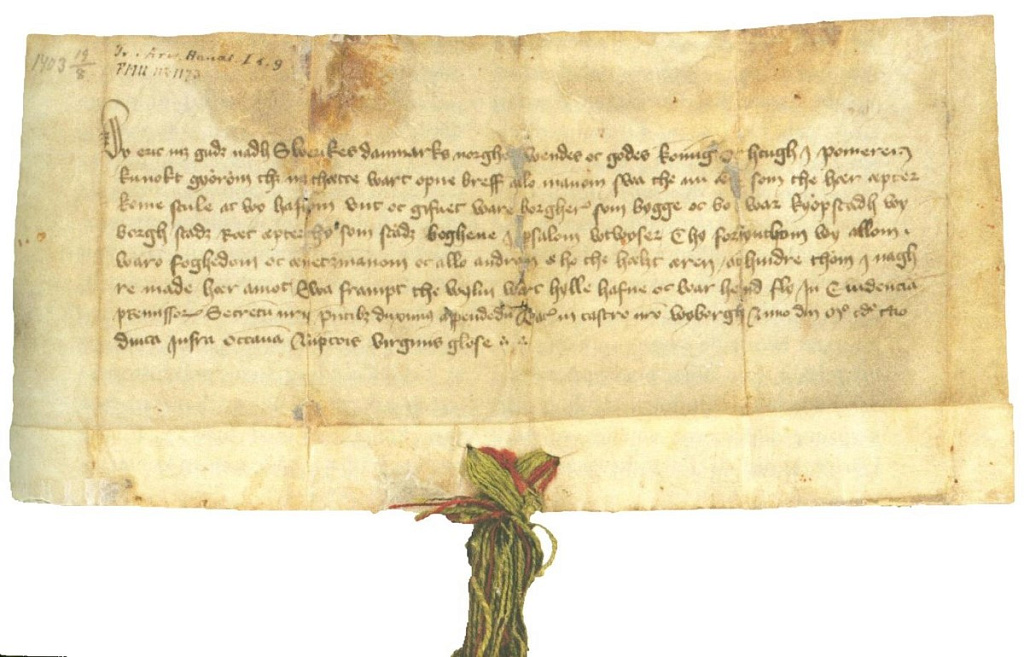 1403 19/8
FMU nr 1173
Wy eric mz gudz nadh Swerikes danmarks norghes wendes oc godes konung oc hertugh j pomeren
kunokt gørom thz mz thætte wart opne breff allom mannom swa the nu æru som the hær æpter
kome skule at wy hafwom unt oc gifuet ware borghere som bygge oc bo j war kyøpstadh wy
borgh stadz ræt æpter thy som stadz boghene j wpsalom wtwyser Thy foriwthom wy allom
warom foghedom oc æmetzmannom oc allom androm e ho the hælzt æren oc hindre thom j nagh
re made hær amot Swa frampt the wylia wart hylle hafue oc war hemd fly In Euidencia
premissorum Secretum nrm pntibz duximus appendendum Datum in castro nro wyborgh Anno dni m° cd° tercio
dnica infra octauam Assumpcionis virginis gloriose